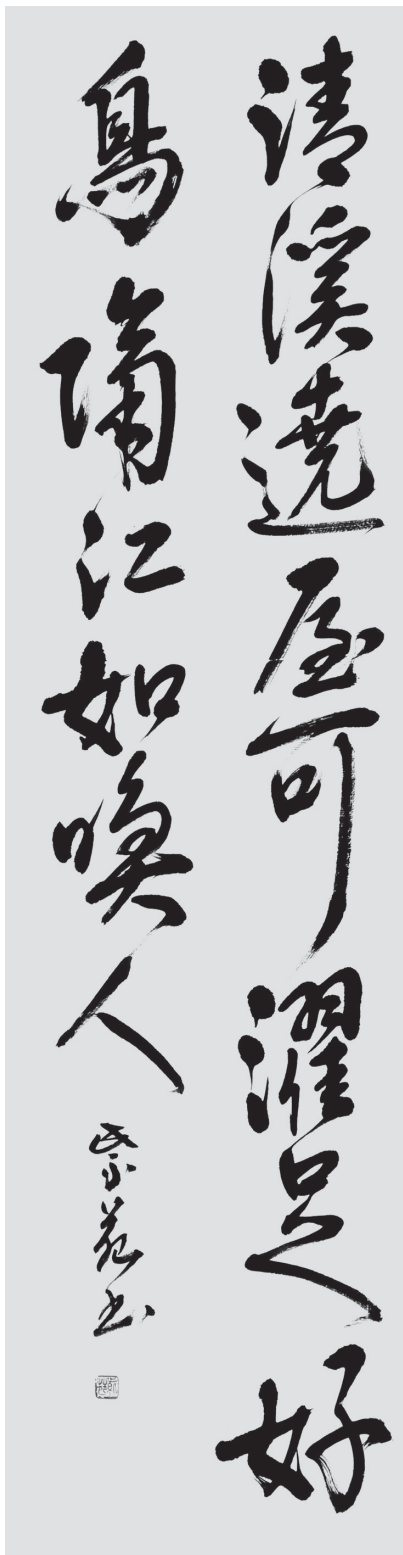 清溪遶屋可濯足好
鳥隔江如喚人
紫苑書